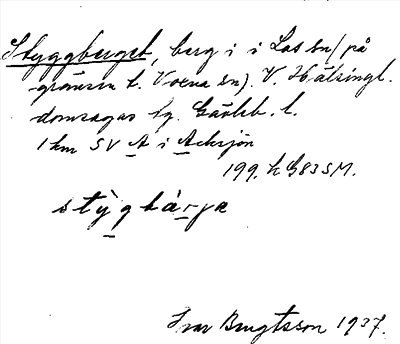 Styggberget, berg i i Los sn (på
gränsen t. Voxna sn). V. Hälsingl.
domsagas tg. Gävleb. l.
1 km SV A i Acksjön
199. h G83 SM.
stỳgbàrja
Ivar Bengtsson 1937.